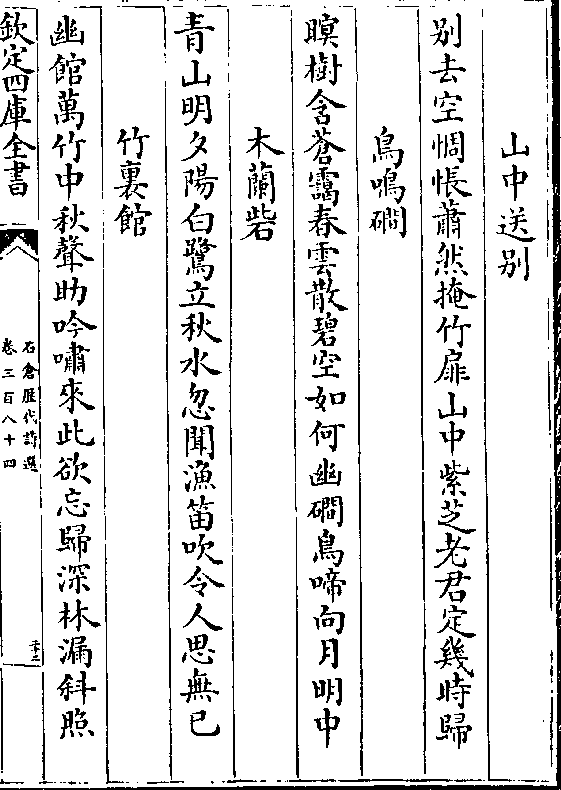 山中送别
别去空惆悵蕭然掩竹扉山中紫芝老君定幾時歸
鳥鳴磵
暝樹含蒼靄春雲散碧空如何幽磵鳥啼向月明中
木蘭砦
青山明夕陽白鷺立秋水忽聞漁笛吹令人思無已
竹裏館
幽館萬竹中秋聲助吟嘯來此欲忘歸深林漏斜照
欽定四庫全書
石倉歷代詩選
卷三百八十四